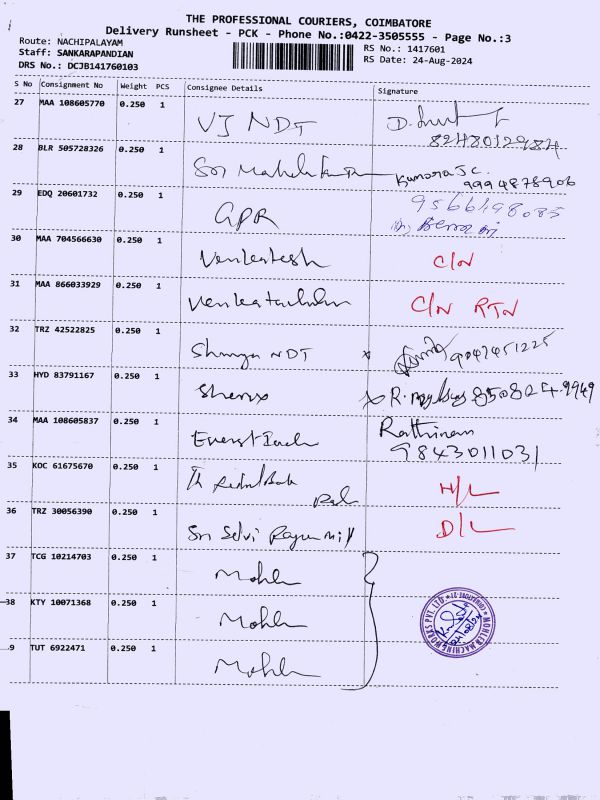 THE PROFESSIONAL COURIERS, COIMBATORE
Delivery Runsheet - PCK - Phone No.:0422-3505555 - Page No.:3
Route: NACHIPALAYAM
Staff: SANKARAPANDIAN
DRS No.: DCJB141760103
RS No.: 1417601
RS Date: 24-Aug-2024
S No Consignment No Weight PCS Consignee Details Signature
27 MAA 108605770 0.250 1 VJ NDT D.
8248012984
28 BLR 505728326 0.250 1 Sri
9994878906
29 EDQ 20601732 0.250 1 GPR 9566198085
30 MAA 704566630 0.250 1 Venkatesh C/N
31 MAA 866033929 0.250 1 C/N RTN
32 TRZ 42522825 0.250 1 NDT x 9047451225
33 HYD 83791167 0.250 1 x R.
34 MAA 108605837 0.250 1 Rathinam
9843011031
35 KOC 61675670 0.250 1 H/L
36 TRZ 30056390 0.250 1 Sri Selvi D/L
37 TCG 10214703 0.250 1 Mohler
38 KTY 10071368 0.250 1 Mohler
9 TUT 6922471 0.250 1 Mohler
MOHLER MACHINE WORKS PVT. LTD.